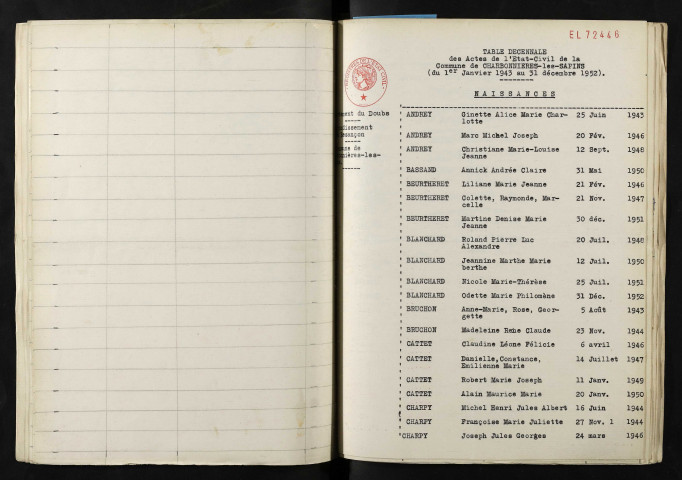 EL 72446
TABLE DECENNALE
des Actes de l'Etat-Civil de la
Commune de CHARBONNIERES-les-SAPINS
(du 1er Janvier 1943 au 31 décembre 1952).
NAISSANCES
ment du Doubs
dissement
esançon
une de
nnières-les-
ANDREY Ginette Alice Marie Char- 25 Juin 1943
lotte
ANDREY Marc Michel Joseph 20 Fév. 1946
ANDREY Christiane Marie-Louise 12 Sept. 1948
Jeanne
BASSAND Annick Andrée Claire 31 Mai 1950
BEURTHERET Liliane Marie Jeanne 21 Fév. 1946
BEURTHERET Colette, Raymonde, Mar- 21 Nov. 1947
celle
BEURTHERET Martine Denise Marie 30 déc. 1951
Jeanne
BLANCHARD Roland Pierre Luc 20 Juil. 1948
Alexandre
BLANCHARD Jeannine Marthe Marie 12 Juil. 1950
berthe
BLANCHARD Nicole Marie-Thérèse 25 Juil. 1951
BLANCHARD Odette Marie Philomène 31 Déc. 1952
BRUCHON Anne-Marie, Rose, Geor- 5 Août 1943
gette
BRUCHON Madeleine Rene Claude 23 Nov. 1944
CATTET Claudine Léone Félicie 6 avril 1946
CATTET Danielle,Constance, 14 Juillet 1947
Emilienne Marie
CATTET Robert Marie Joseph 11 Janv. 1949
CATTET Alain Maurice Marie 20 Janv. 1950
CHARPY Michel Henri Jules Albert 16 Juin 1944
CHARPY Françoise Marie Juliette 27 Nov. 1 1944
CHARPY Joseph Jules Georges 24 mars 1946